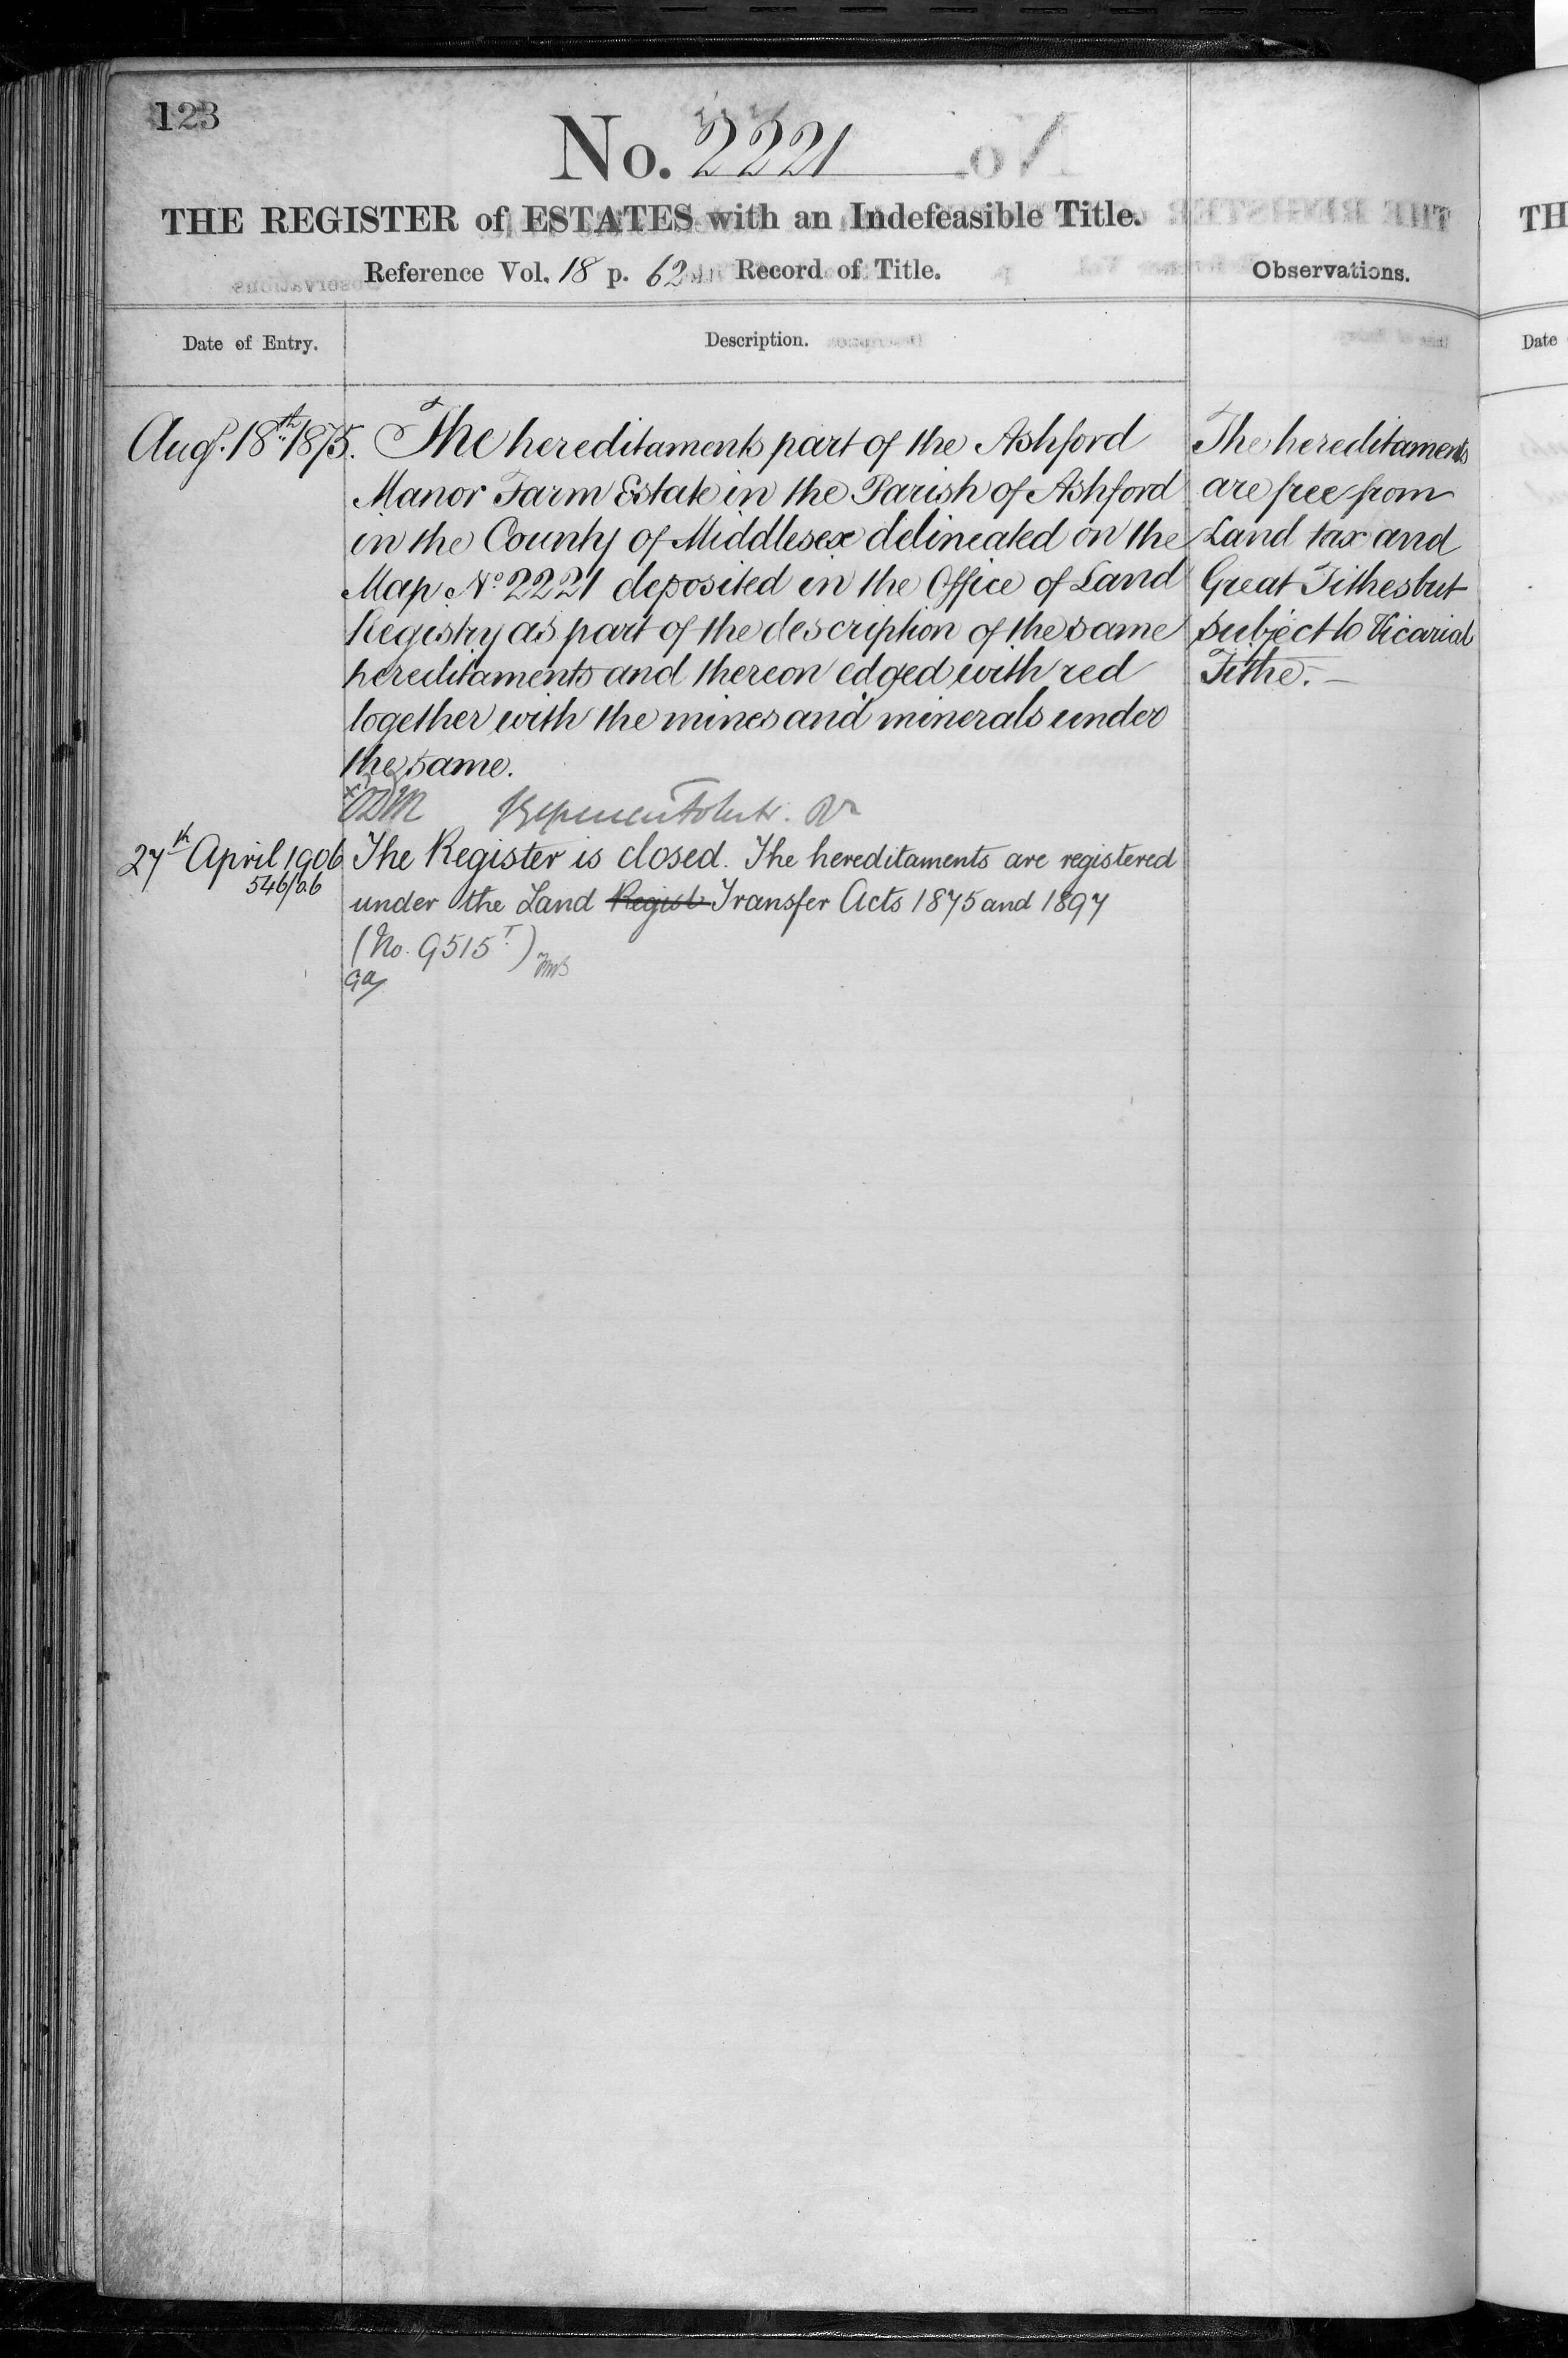 123
No. 2221
THE REGISTER of ESTATES with an Indefeasible Title.
Reference Vol. 18 p. 62 Record of Title.
Observations.
Date of Entry.
Description.
Augt. 18th 1875.
The hereditaments part of the Ashford
Manor Farm Estate in the Parish of Ashford
in the County of Middlesex delineated on the
Map No 2221 deposited in the Office of Land
Registry as part of the description of the same
hereditaments and thereon edged with red
together with the mines and minerals under
the same.
The hereditaments
are free from
Land tax and
Great Tithes but
subject to Vicarial
Tithe.—
27th April 1906
546/06
The Register is closed. The hereditaments are registered
under the Land Regist Transfer Acts 1875 and 1897
(No. 9515 T.)
TH
Date